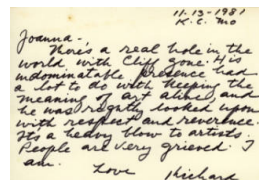 11-13-1981
K.C. Mo
Joanna -
There's a real hole in the
world with Cliff gone. His
indominatable presence had
a lot to do with keeping the
meaning of art alive and
he was rightly looked upon
with respect and reverence.
It's a heavy blow to artists.
People are very grieved. I
am.
Love
Richard